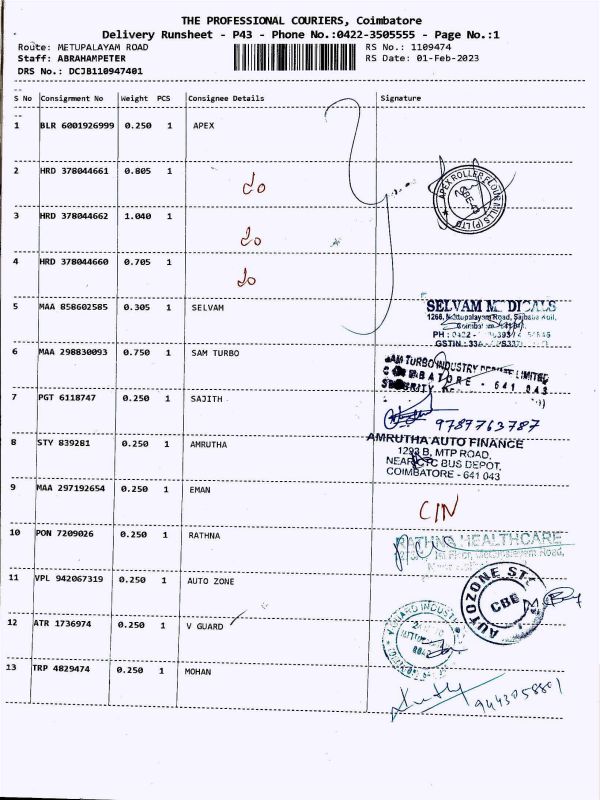 THE PROFESSIONAL COURIERS, Coimbatore
Delivery Runsheet - P43 - Phone No.:0422-3505555 - Page No.:1
Route: METUPALAYAM ROAD RS No.: 1109474
Staff: ABRAHAMPETER RS Date: 01-Feb-2023
DRS No.: DCJB110947401
S No Consignment No Weight PCS Consignee Details Signature
1 BLR 6001926999 0.250 1 APEX
2 HRD 378044661 0.805 1 do
APEX ROLLER FLOUR MILLS (P) LTD
3 HRD 378044662 1.040 1 do
4 HRD 378044660 0.705 1 do
5 MAA 858602585 0.305 1 SELVAM
SELVAM
1268, Road,
PH : 0422 -
GSTIN : 33A
6 MAA 298830093 0.750 1 SAM TURBO
SAM TURBO INDUSTRY PRIVATE LIMITED
COIMBATORE - 641 043
SECURITY
7 PGT 6118747 0.250 1 SAJITH
9787763787
8 STY 839281 0.250 1 AMRUTHA
AMRUTHA AUTO FINANCE
1293 B, MTP ROAD,
NEAR CTC BUS DEPOT,
COIMBATORE - 641 043
9 MAA 297192654 0.250 1 EMAN
CIN
10 PON 7209026 0.250 1 RATHNA
RATHNA HEALTHCARE
Road,
11 VPL 942067319 0.250 1 AUTO ZONE
AUTOZONE
CBE
12 ATR 1736974 0.250 1 V GUARD
V GUARD INDUSTRI
13 TRP 4829474 0.250 1 MOHAN
9443058801